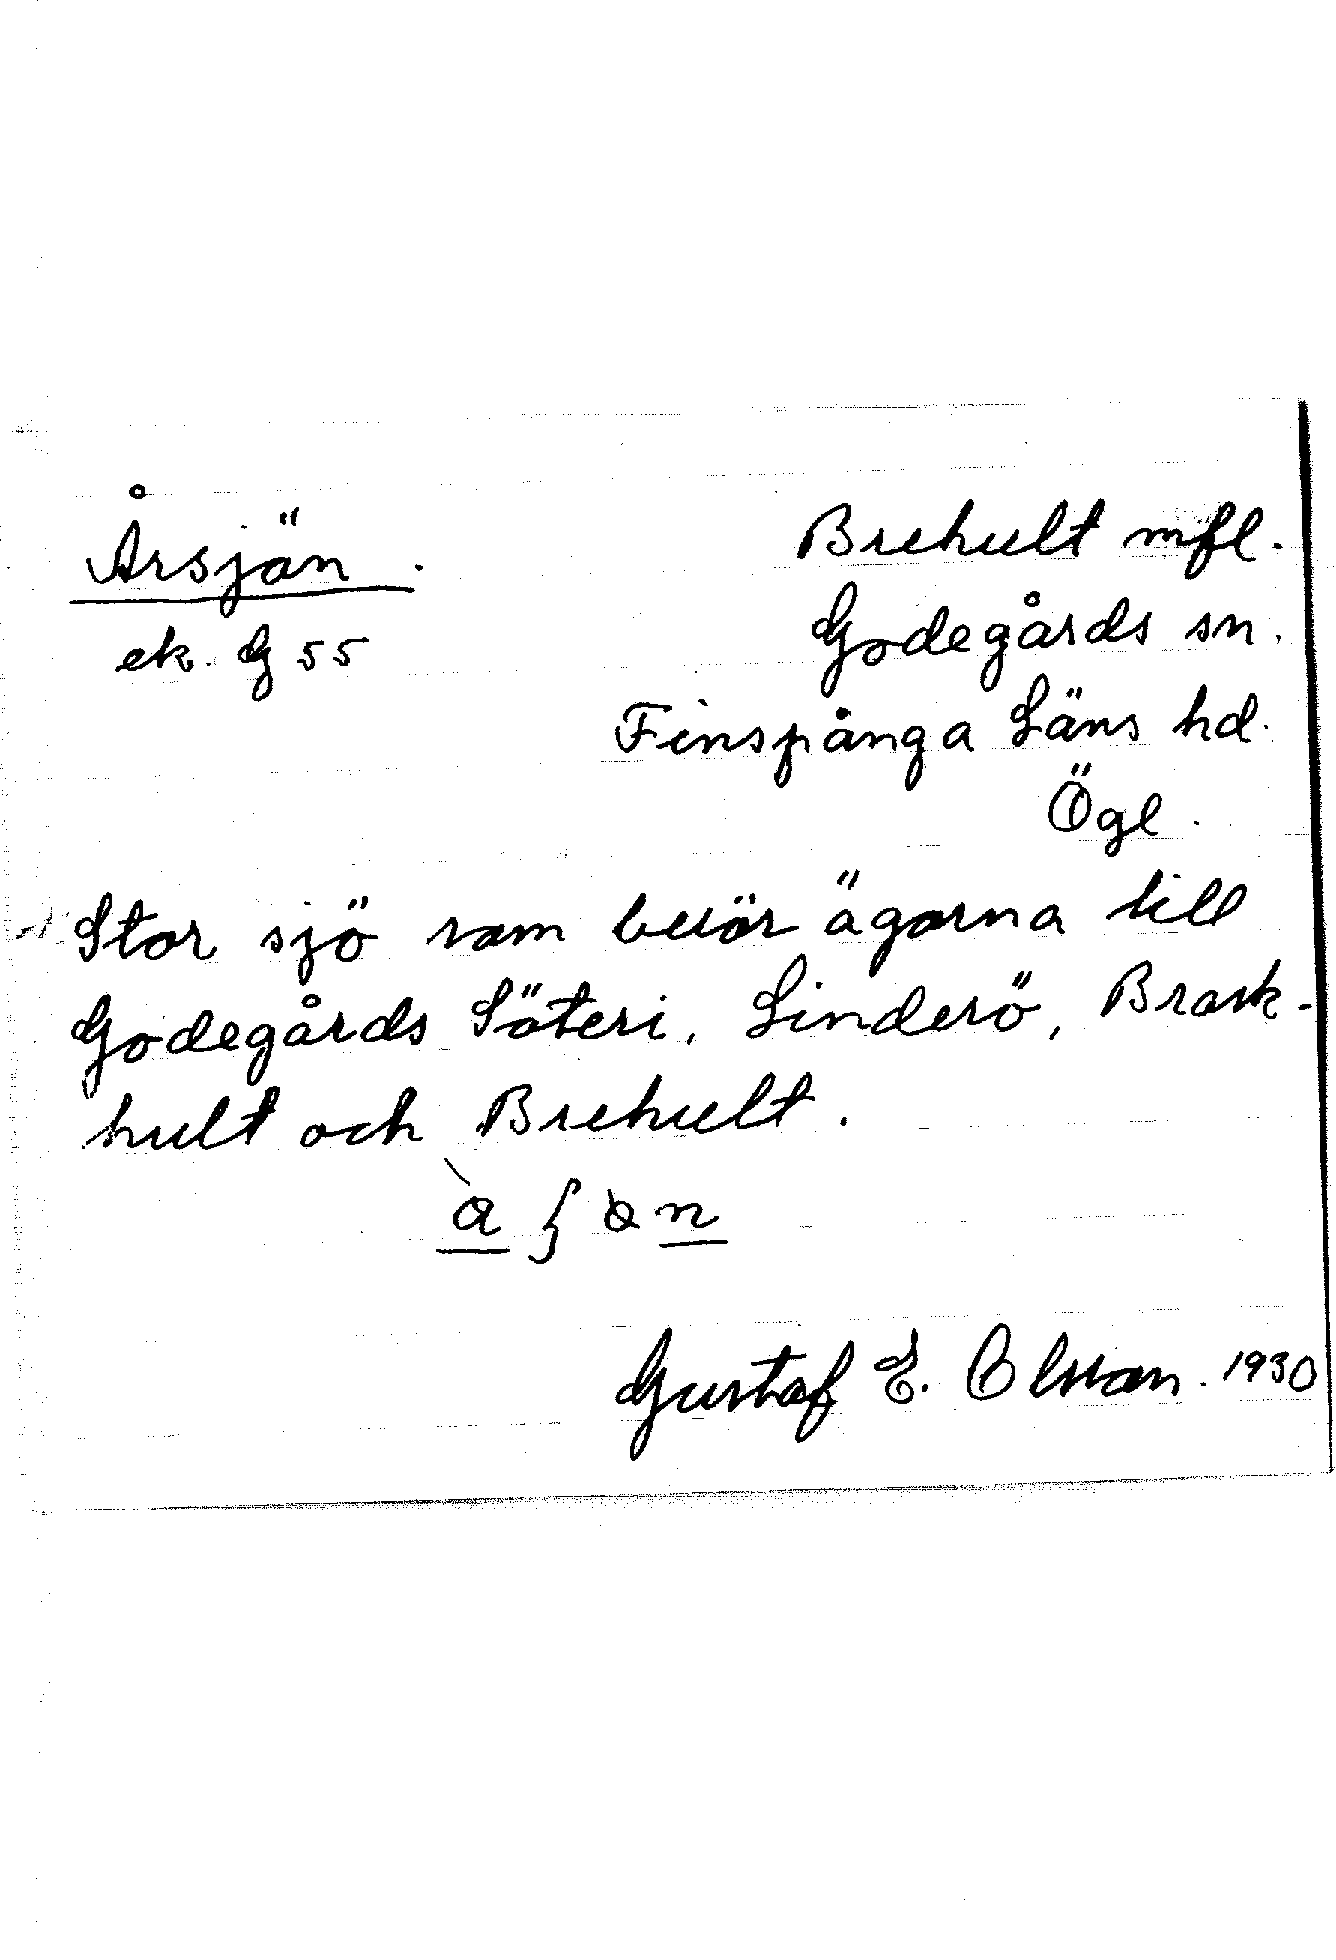 Årsjön.
ek. G 55
Brehult mfl.
Godegårds sn.
Finspånga Läns hd.
Ögl.
Stor sjö som berör ägorna till
Godegårds Säteri, Linderö, Brask-
hult och Brehult.
Gustaf E. Olsson. 1930